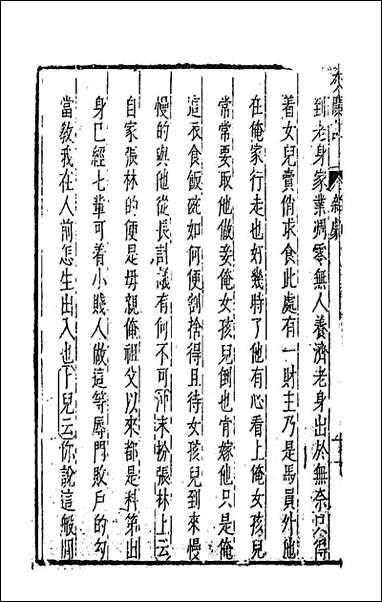 到老身家業凋零無人養濟老身出於無奈只得
着女兒賣俏求食此處有一財主乃是馬員外他
在俺家行走也好幾時了他有心看上俺女孩兒
常常要取他做妾俺女孩兒倒也肯嫁他只是俺
這衣食飯碗如何便割捨得且待女孩兒到來慢
慢的與他從長計議有何不可冲末扮張林上云
自家張林的便是母親俺祖父以來都是科第出
身已經七輩可着小賤人做這等辱門敗戶的勾
當教我在人前怎生出入也卜兒云你說這般閒